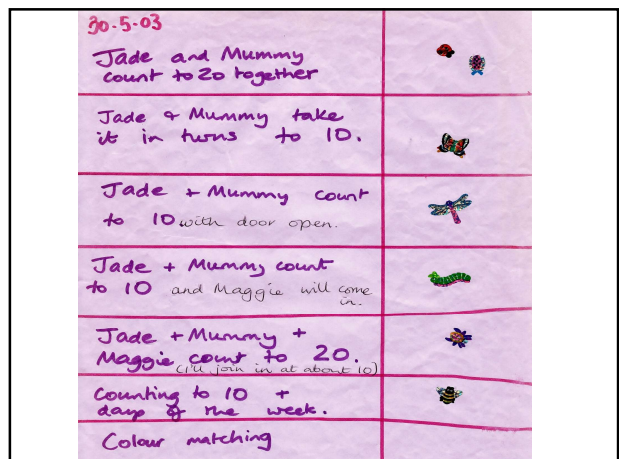 30-5-03
Jade and Mummy
count to 20 together
Jade & Mummy take
it in turns to 10.
Jade + Mummy count
to 10 with door open.
Jade + Mummy count
to 10 and Maggie will come
in.
Jade + Mummy +
Maggie count to 20.
(I'll join in at about 10)
Counting to 10 +
days of the week.
Colour matching